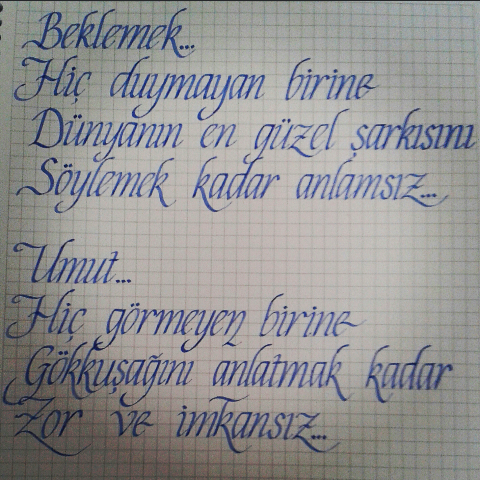 Beklemek...
Hiç duymayan birine
Dünyanın en güzel şarkısını
Söylemek kadar anlamsız...
Umut...
Hiç görmeyen birine
Gökkuşağını anlatmak kadar
Zor ve imkansız...